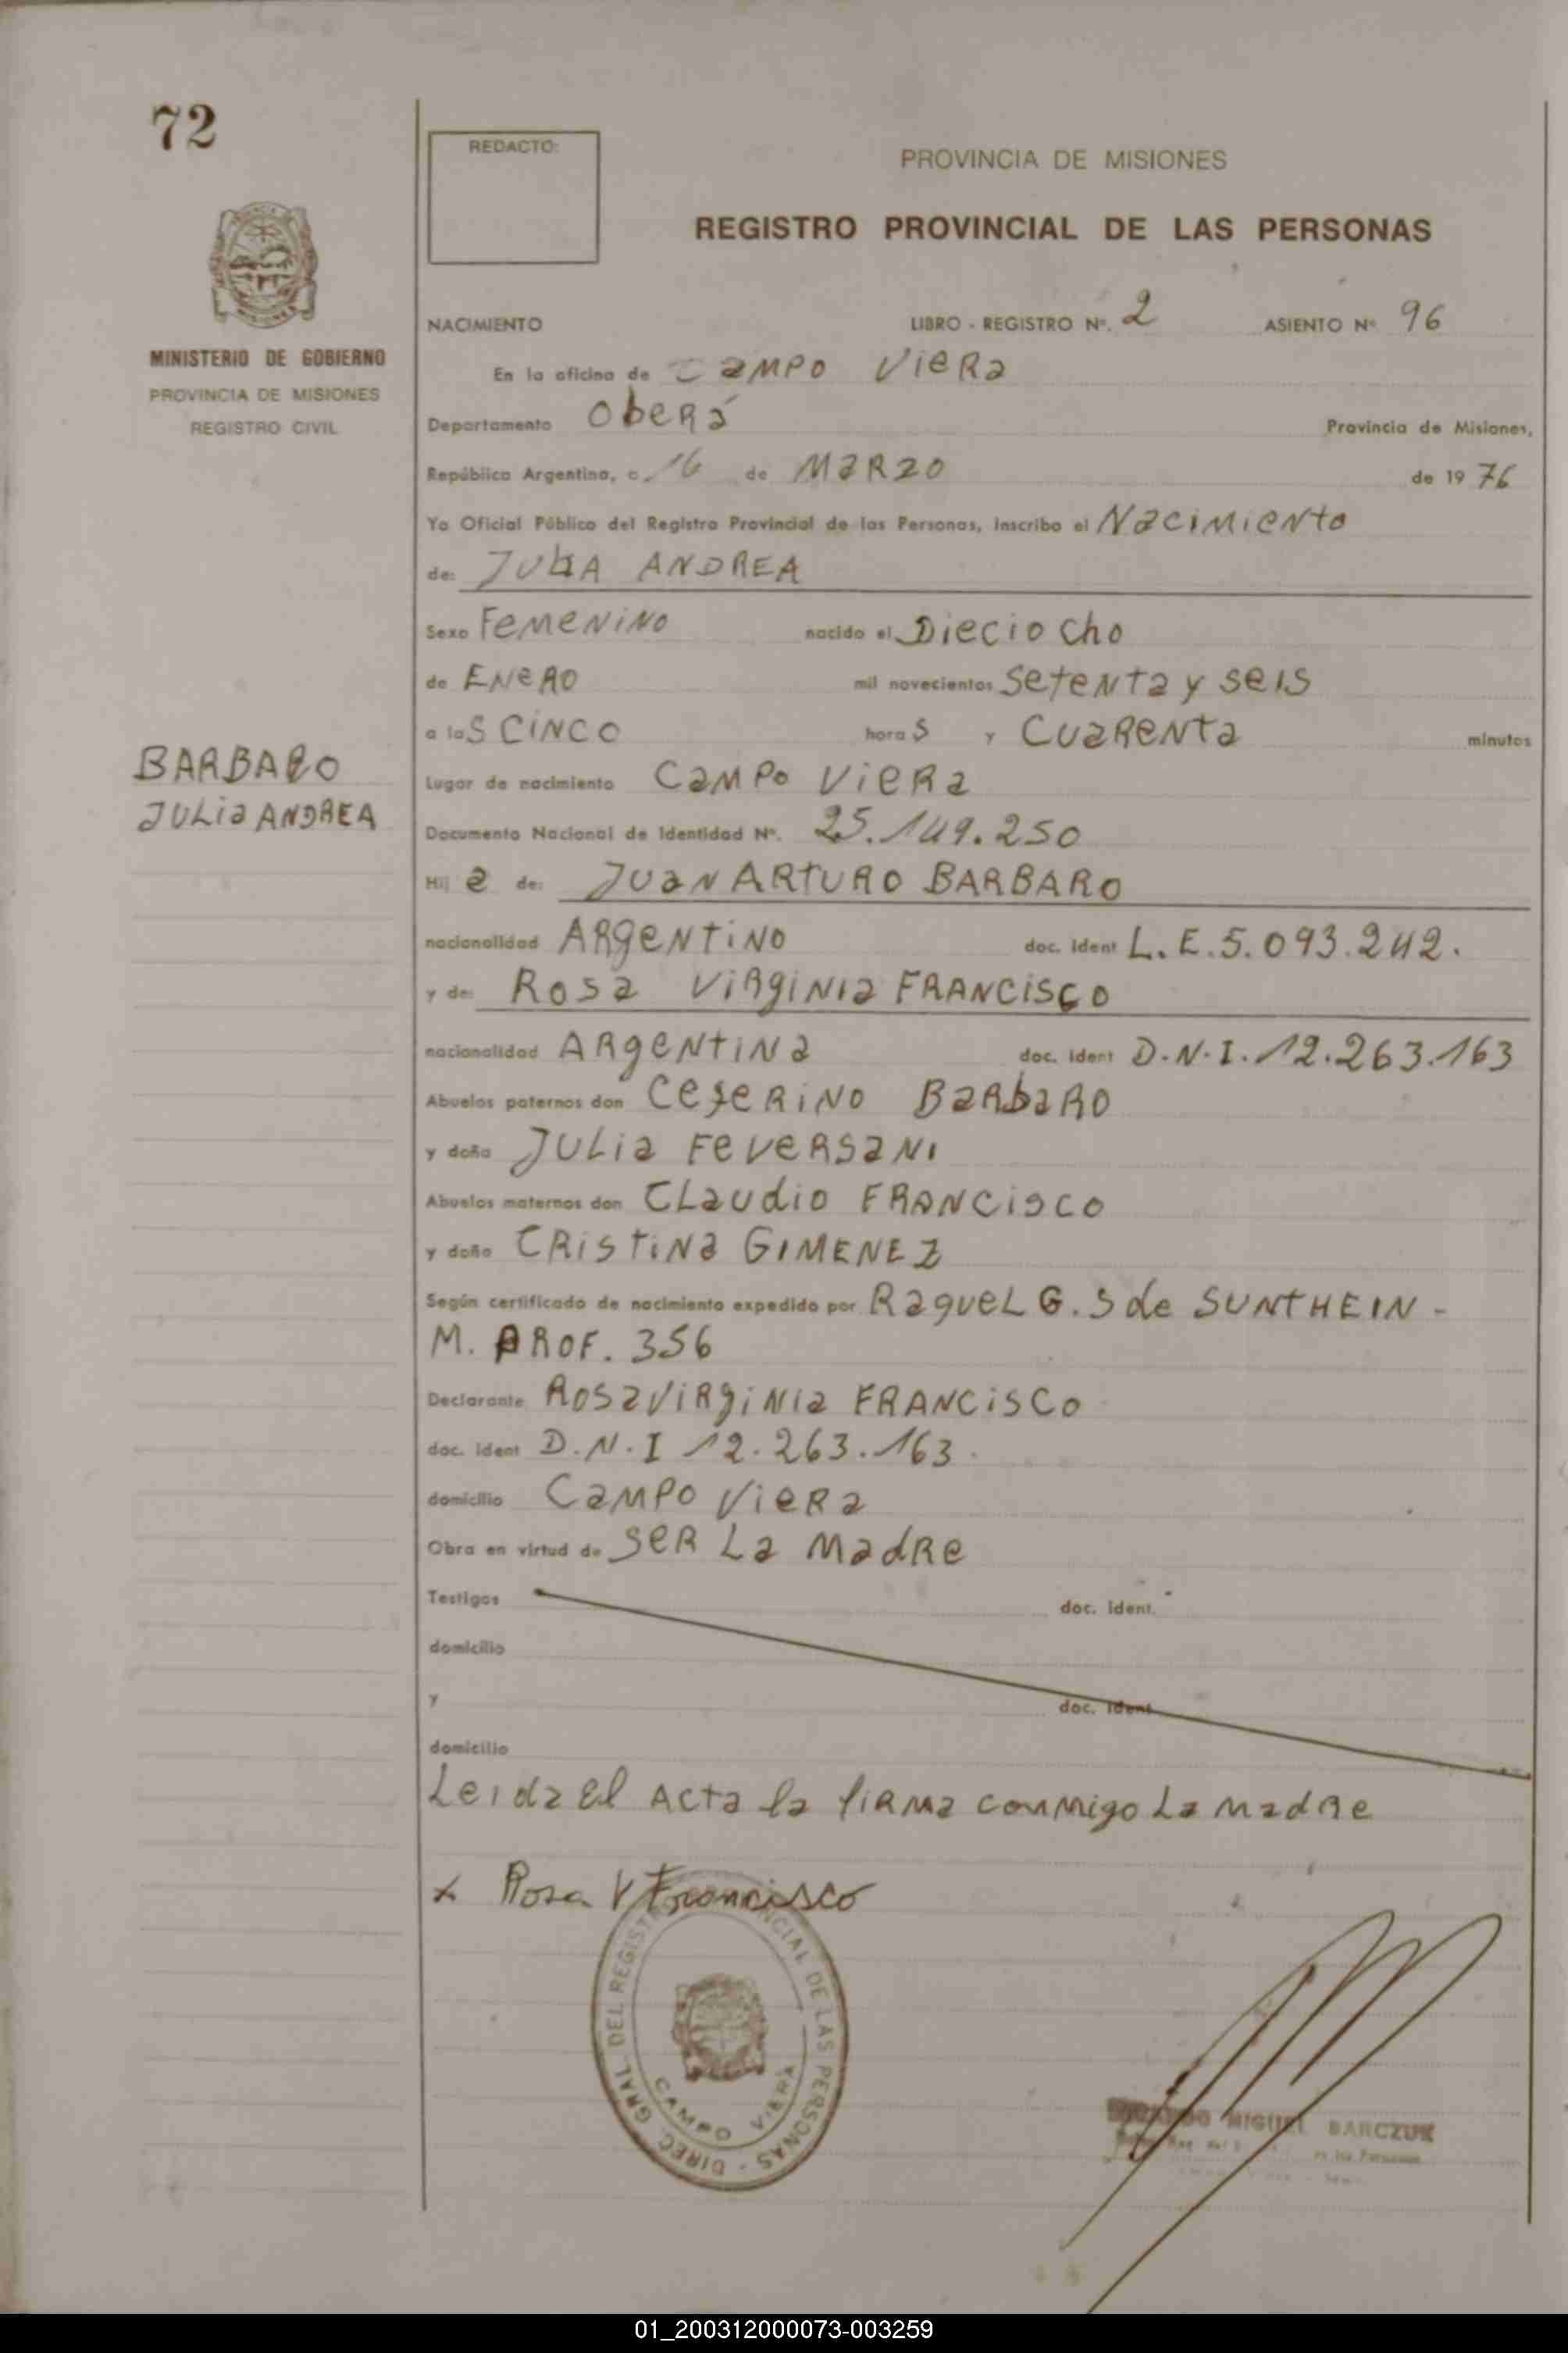 72
REDACTO:
PROVINCIA DE MISIONES
REGISTRO PROVINCIAL DE LAS PERSONAS
MINISTERIO DE GOBIERNO
PROVINCIA DE MISIONES
REGISTRO CIVIL
NACIMIENTO LIBRO - REGISTRO Nº. 2 ASIENTO Nº 96
En la oficina de CAMPO VIERA
Departamento Oberá Provincia de Misiones,
República Argentina, a 16 de MARZO de 1976
Yo Oficial Público del Registro Provincial de las Personas, inscribo el Nacimiento
de: JULIA ANDREA
Sexo Femenino nacido el Dieciocho
de ENERO mil novecientos Setenta y seis
a las CINCO horas y CUARENTA minutos
BARBARO
JULIA ANDREA
Lugar de nacimiento CAMPO VIERA
Documento Nacional de Identidad Nº. 25.149.250
Hija de: JUAN ARTURO BARBARO
nacionalidad ARGENTINO doc. ident L.E.5.093.242.
y de: ROSA VIRGINIA FRANCISCO
nacionalidad ARGENTINA doc. ident D.N.I.12.263.163
Abuelos paternos don CEFERINO BARBARO
y doña JULIA FEVERSANI
Abuelos maternos don CLAUDIO FRANCISCO
y doña CRISTINA GIMENEZ
Según certificado de nacimiento expedido por RAQUEL G. S de SUNTHEIN -
M. PROF. 356
Declarante ROSA VIRGINIA FRANCISCO
doc. ident D.N.I 12.263.163.
domicilio CAMPO VIERA
Obra en virtud de SER LA MADRE
Testigos doc. ident.
domicilio
y doc. ident
domicilio
Leida El Acta la firma conmigo La madre
x Rosa V Francisco
DIREC. GRAL. DEL REGISTRO PROVINCIAL DE LAS PERSONAS -
CAMPO VIERA
MIGUEL BARCZUK
01_200312000073-003259